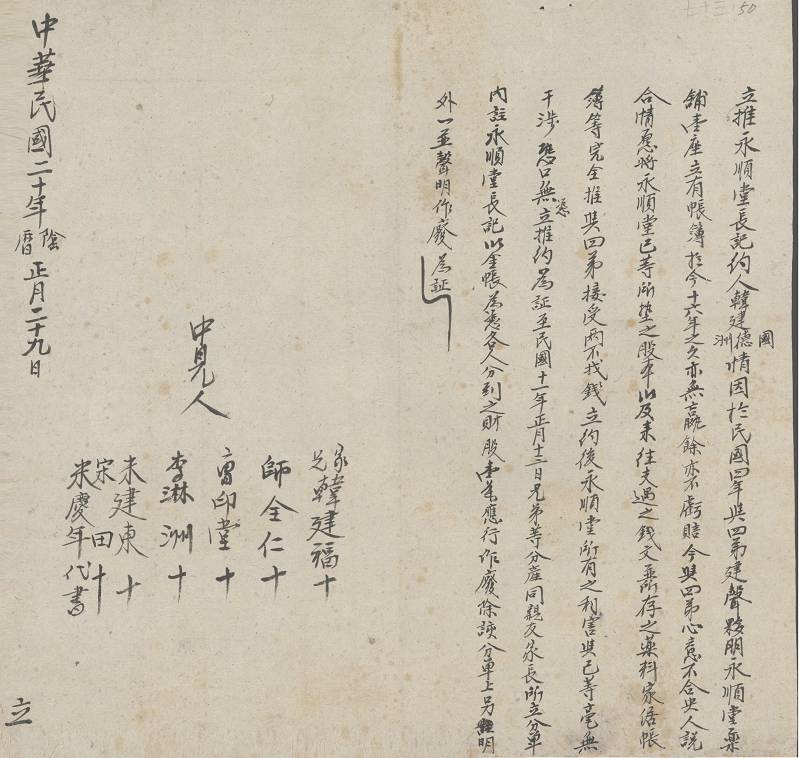 七十三 50
立推永順堂長記約人韓建德國洲情因於民國四年與四弟建聲夥開永順堂藥
舖壹座立有帳簿於今十六年之久亦無贏餘亦不虧賠今與四弟心意不合央人說
合情愿將永順堂己等所墊之股本以及來往支過之錢文並所存之藥料家俱帳
簿等完全推與四弟接受兩不找錢立約後永順堂所有之利害與己等毫無
干涉恐口無憑立推約為証至民國十一年正月十三日兄弟等分產同親友家長所立分單
內註永順堂長記以金帳為憑各人分到之財股壹筆應行作廢除該分單上另註明
外一並聲明作廢為証
中見人
家兄韓建福十
師全仁十
印堂十
李淋洲十
建東十
宋田十
慶年代書
中華民國二十年陰曆正月二十九日
立